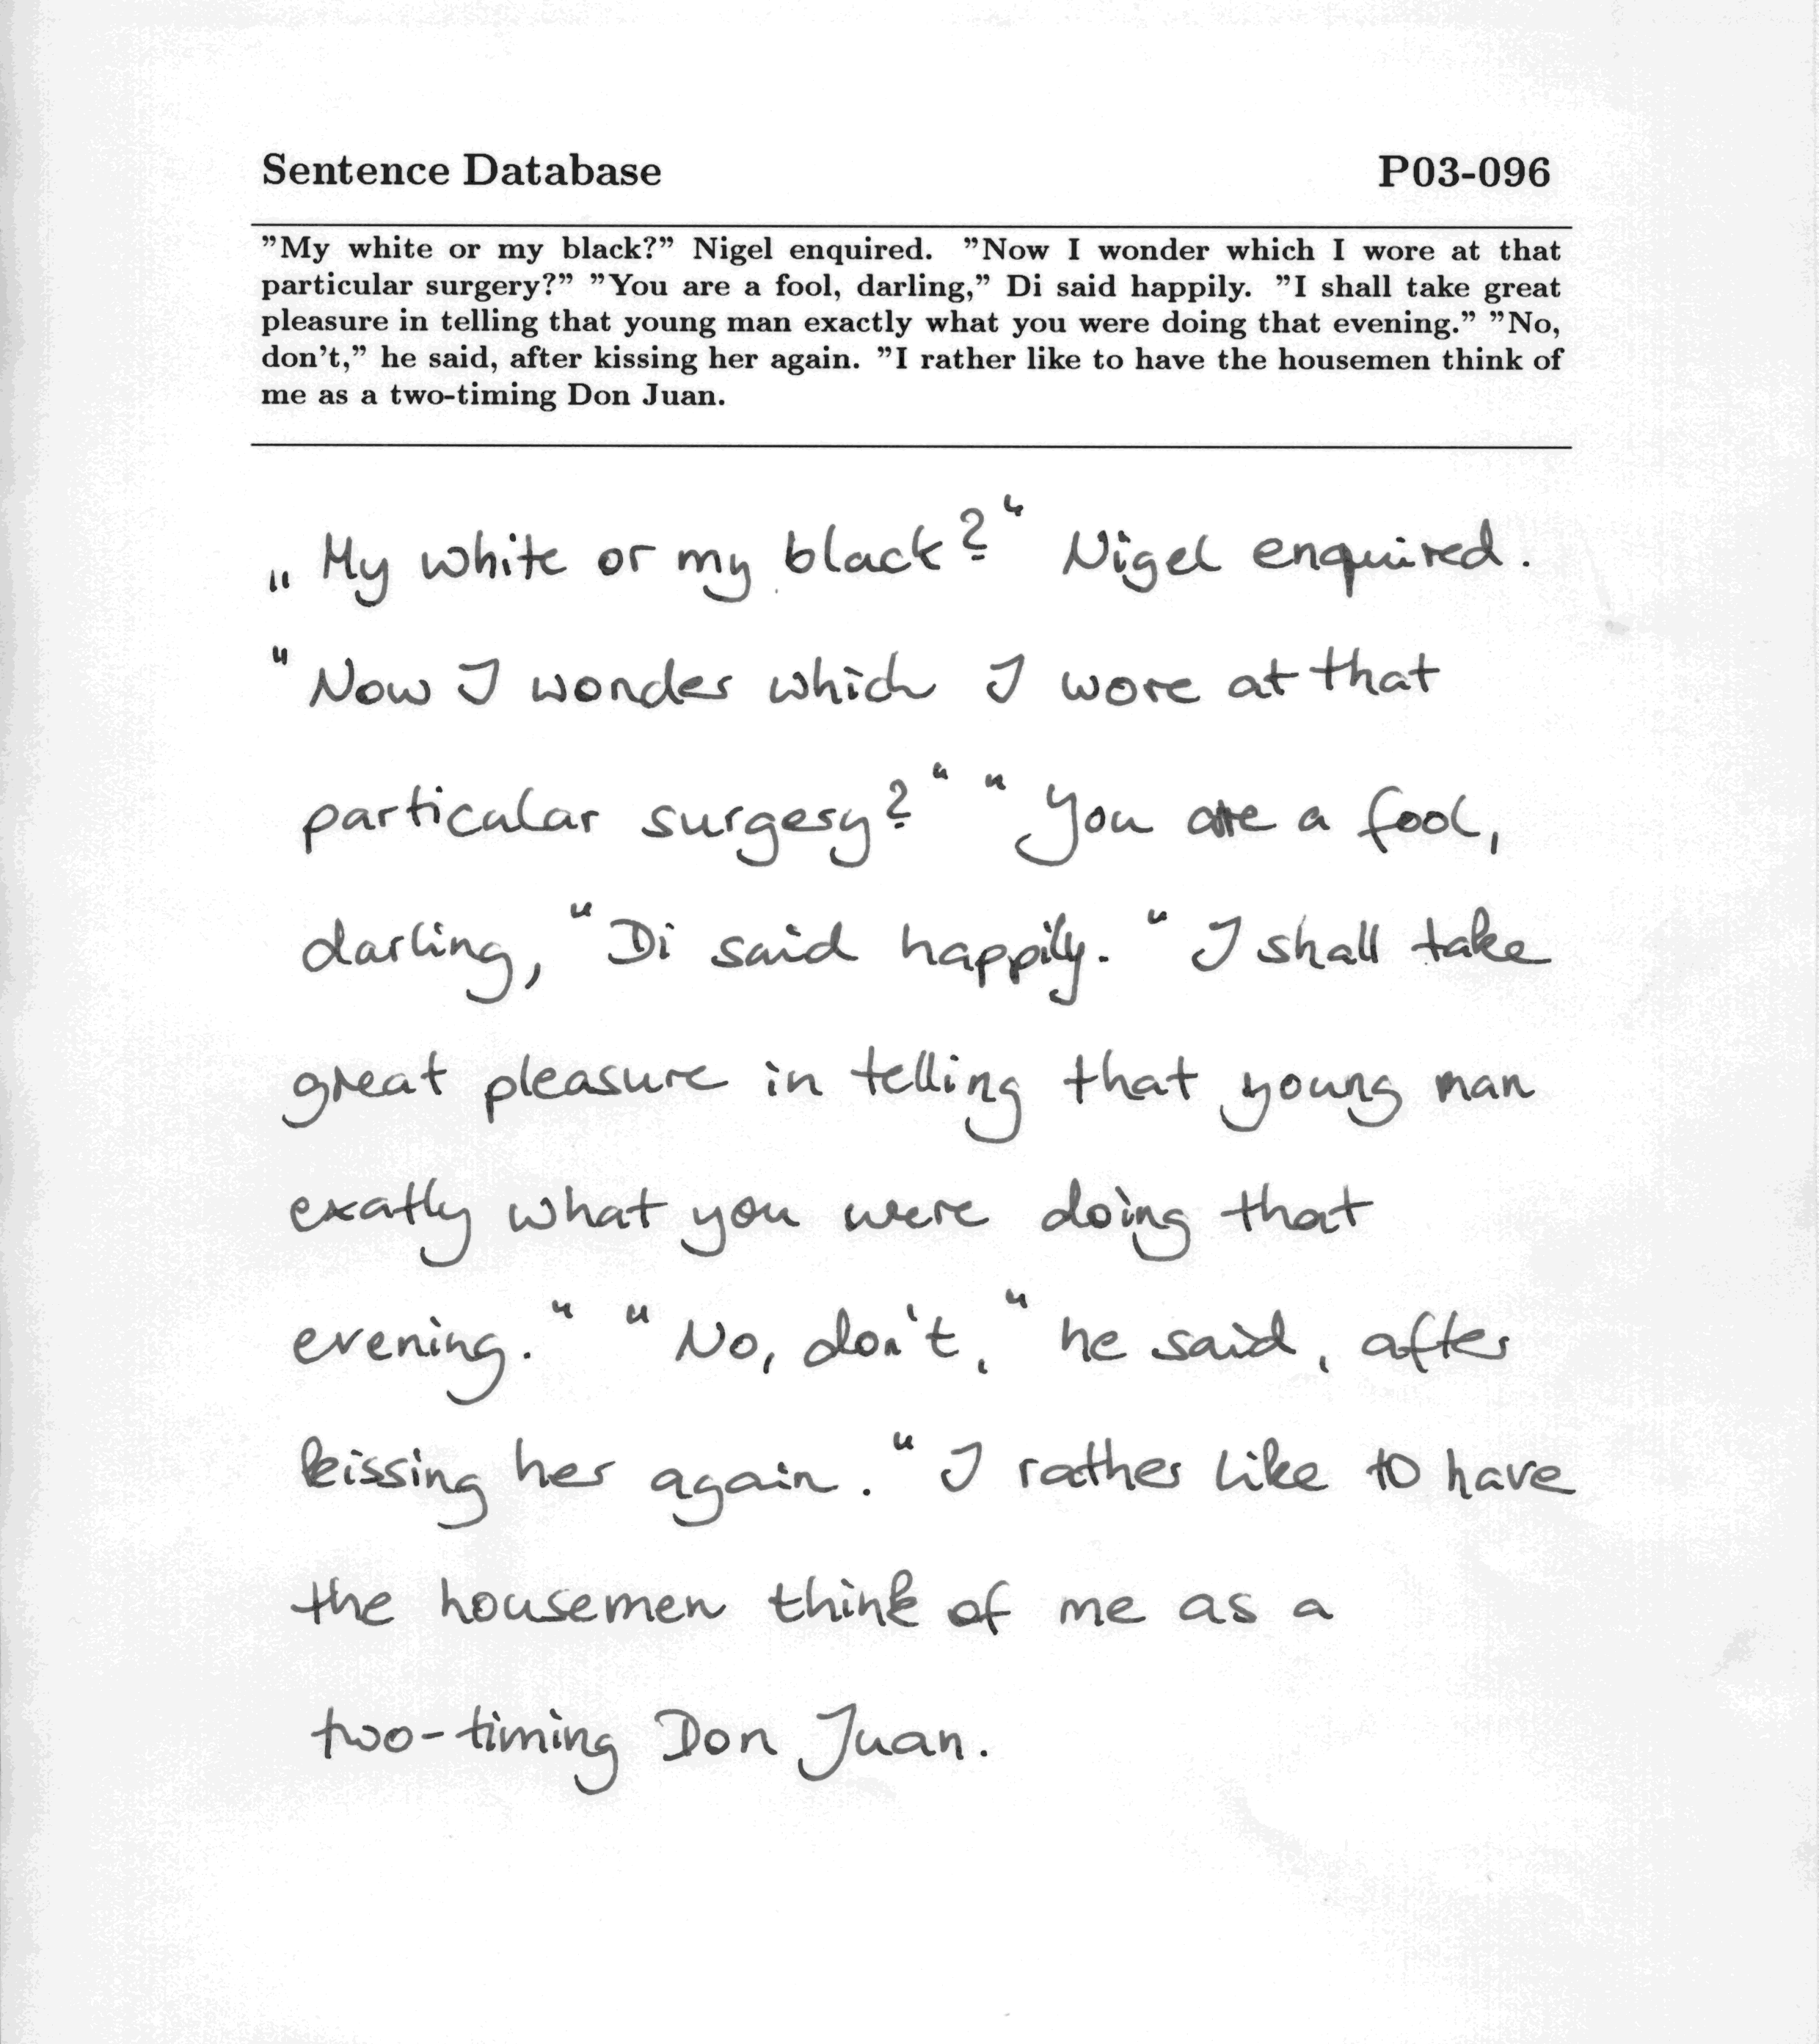 Sentence Database P03-096
”My white or my black?” Nigel enquired. ”Now I wonder which I wore at that
particular surgery?” ”You are a fool, darling,” Di said happily. ”I shall take great
pleasure in telling that young man exactly what you were doing that evening.” ”No,
don’t,” he said, after kissing her again. ”I rather like to have the housemen think of
me as a two-timing Don Juan.
„My white or my black?“ Nigel enquired.
“Now I wonder which I wore at that
particular surgery?“ “You are a fool,
darling,“ Di said happily. “I shall take
great pleasure in telling that young man
exatly what you were doing that
evening.“ “No, don't,“ he said, after
kissing her again. “I rather like to have
the housemen think of me as a
two-timing Don Juan.